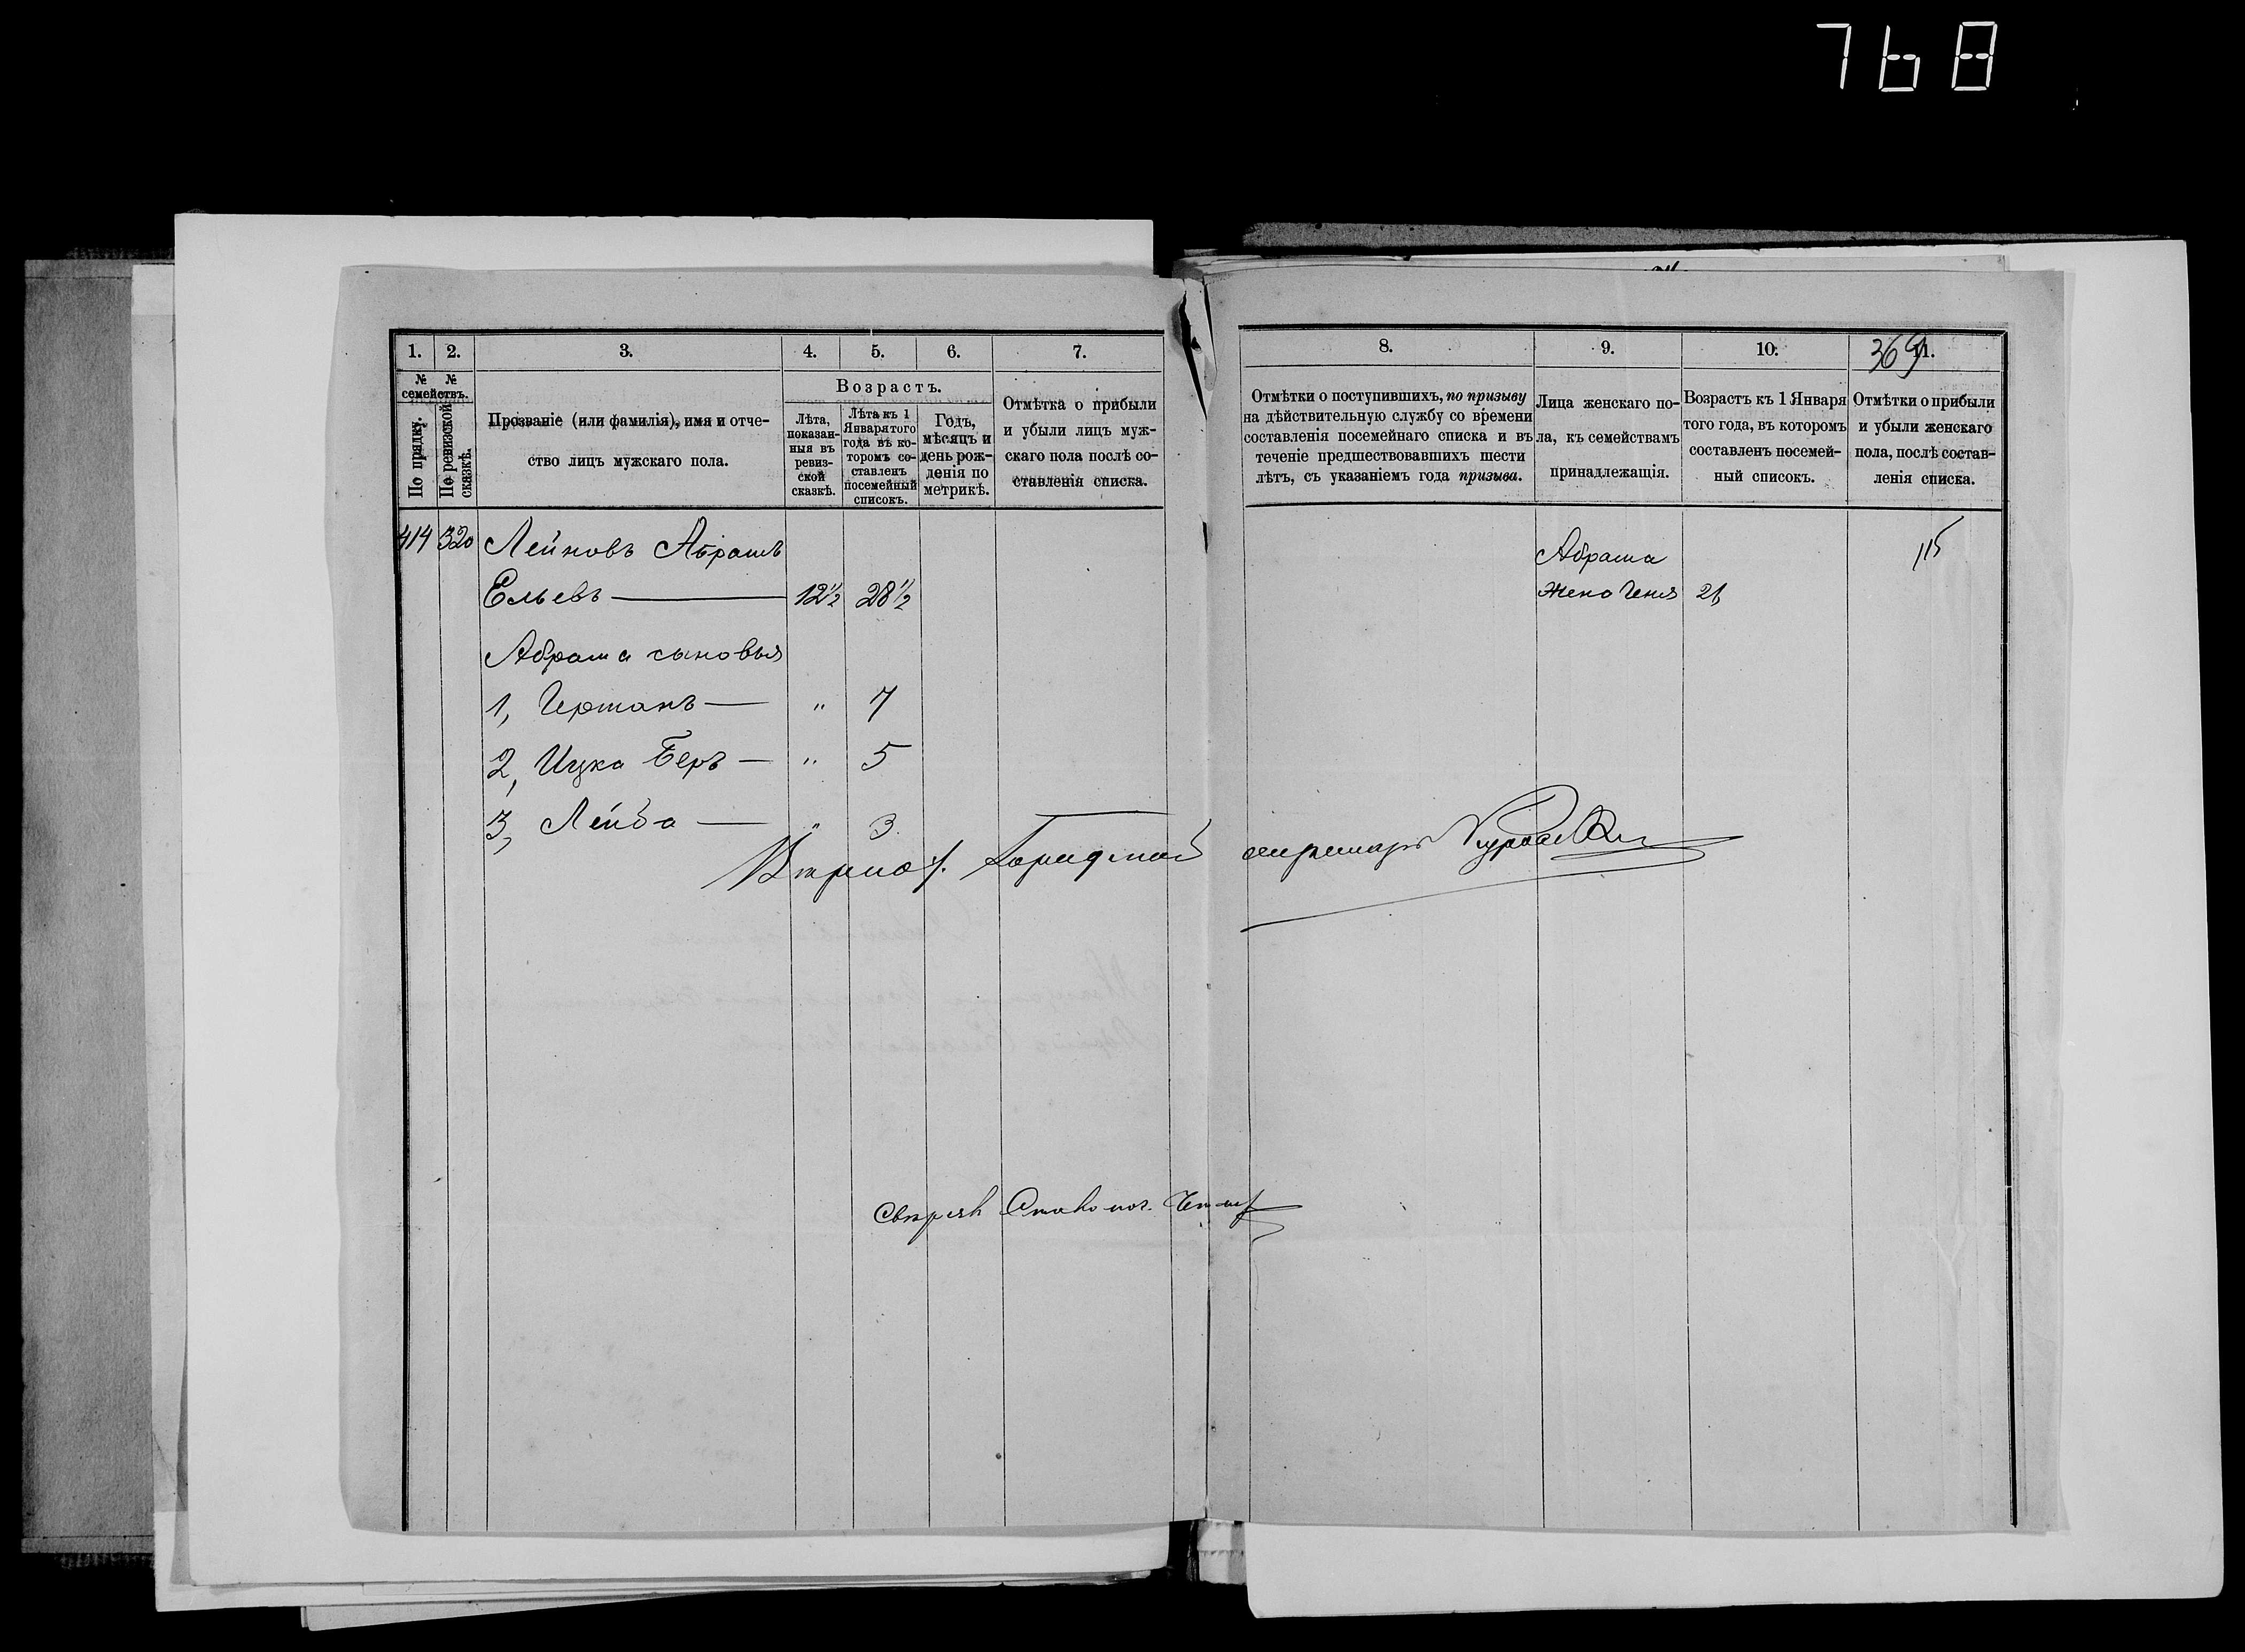 768
1.
2.
3.
4.
5.
6.
7.
№ №
семействъ.
По прядку.
По ревизской
сказкѣ.
Прозваніе (или фамилія), имя и отче-
ство лицъ мужскаго пола.
Возрастъ.
Лѣта,
показан-
ныя въ
ревиз-
ской
сказкѣ.
Лѣта къ 1
Января того
года въ ко-
торомъ со-
ставленъ
посемейный
списокъ.
Годъ,
мѣсяцъ и
день рож-
денія по
метрикѣ.
Отмѣтка о прибыли
и убыли лицъ муж-
скаго пола послѣ со-
ставленія списка.
414 320 Лейновъ Абрамъ
Ельевъ — 12½ 28½
Абрама сыновья
1, Германъ — " 7
2, Ицка Беръ — " 5
3, Лейба — " 3.
8.
9.
10.
11.
369
Отмѣтки о поступившихъ, по призыву
на дѣйствительную службу со времени
составленія посемейнаго списка и въ
теченіе предшествовавшихъ шести
лѣтъ, съ указаніемъ года призыва.
Лица женскаго по-
ла, къ семействамъ
принадлежащія.
Возрастъ къ 1 Января
того года, въ которомъ
составленъ посемей-
ный списокъ.
Отмѣтки о прибыли
и убыли женскаго
пола, послѣ состав-
ленія списка.
Абрама 115
жена Геня 26
Городской секретарь